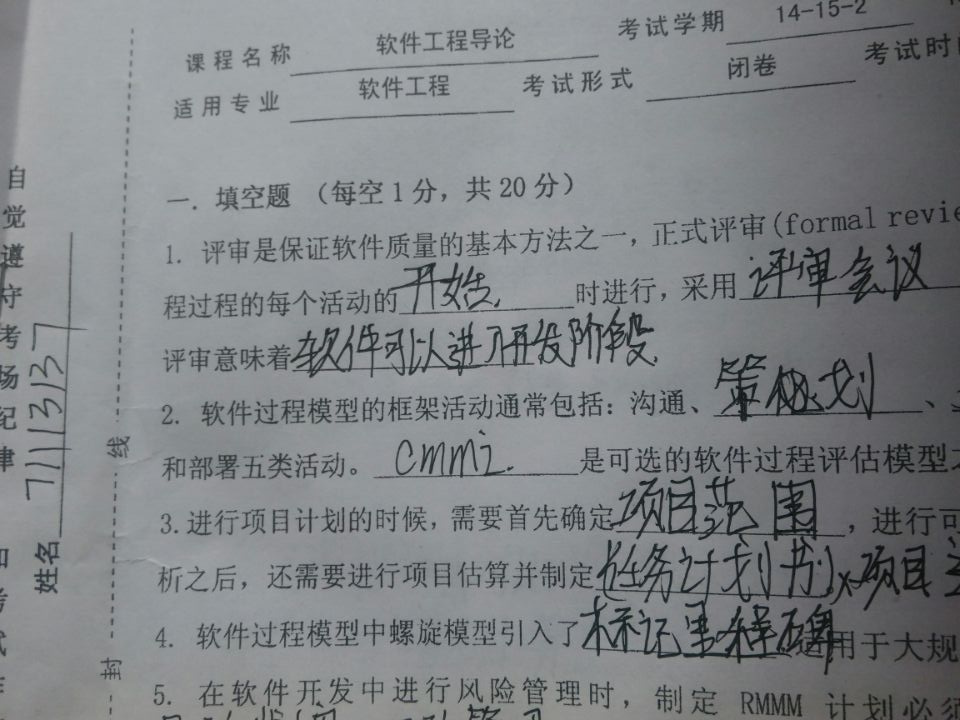 课程名称 软件工程导论 考试学期 14-15-2
适用专业 软件工程 考试形式 闭卷 考试时
一. 填空题 （每空1分，共20分）
1. 评审是保证软件质量的基本方法之一，正式评审(formal revie
程过程的每个活动的 开始. 时进行，采用 评审会议
评审意味着 软件可以进入开发阶段
2. 软件过程模型的框架活动通常包括：沟通、 策划、
和部署五类活动。 cmmi. 是可选的软件过程评估模型
3.进行项目计划的时候，需要首先确定 项目范围 ，进行可
析之后，还需要进行项目估算并制定 (任务计划书) 项目
4. 软件过程模型中螺旋模型引入了 标记里程碑 适用于大规
5. 在软件开发中进行风险管理时，制定 RMMM 计划必须
自觉遵守考场纪律
和考试
姓名 71113137
线
封